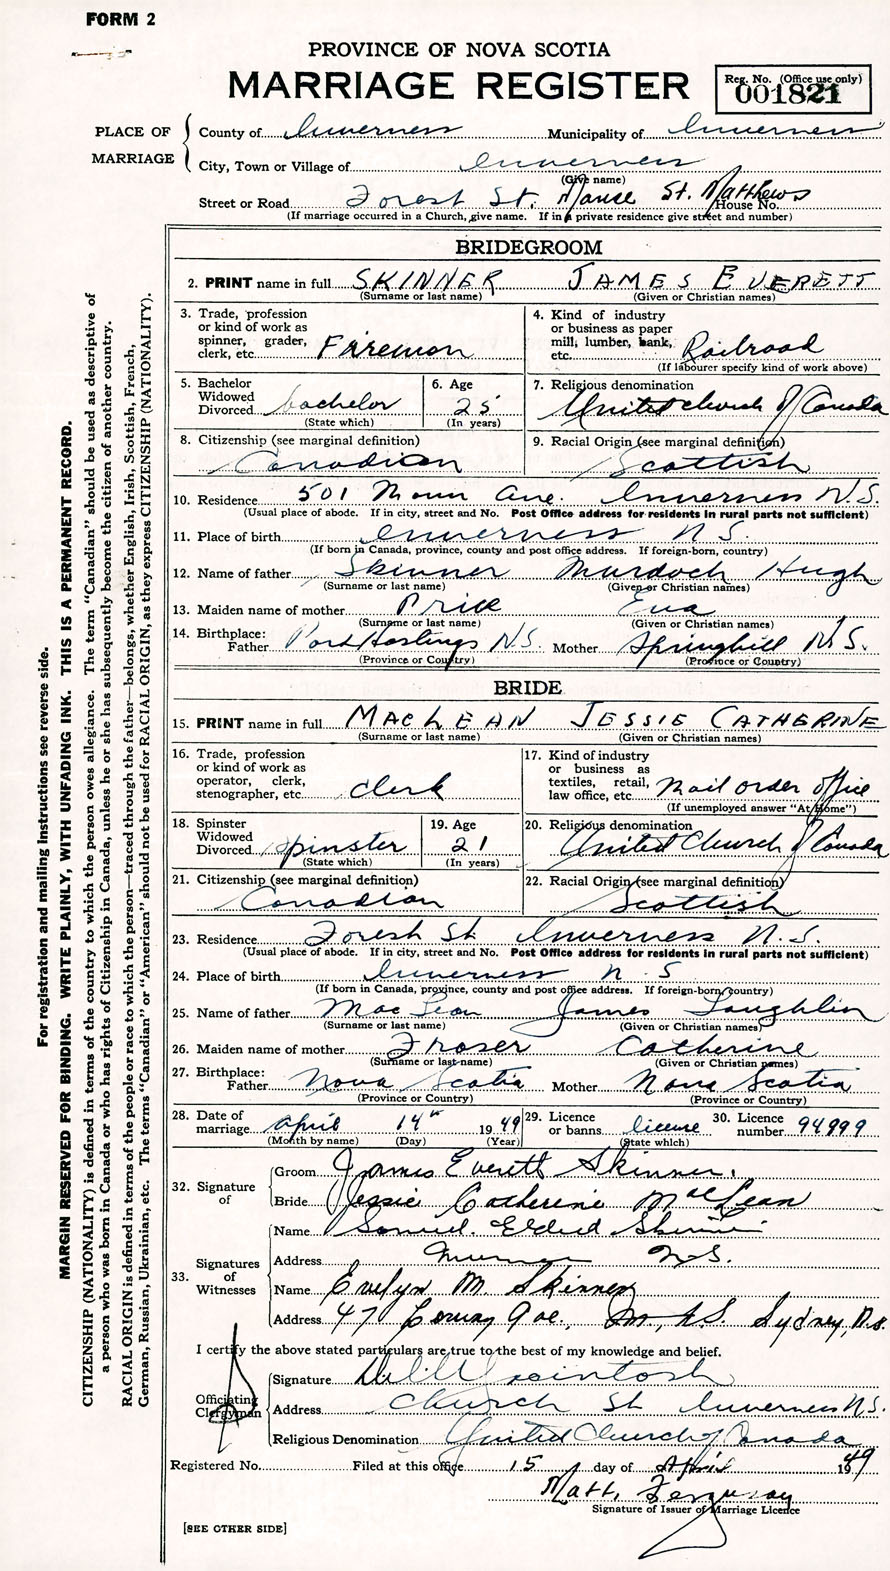 FORM 2
PROVINCE OF NOVA SCOTIA
MARRIAGE REGISTER
Reg. No. (Office use only)
001821
PLACE OF MARRIAGE
County of Inverness Municipality of Inverness
City, Town or Village of Inverness
(Give name)
Street or Road Forest St. Manse St. Matthews House No.
(If marriage occurred in a Church, give name. If in a private residence give street and number)
BRIDEGROOM
2. PRINT name in full SKINNER JAMES EVERETT
(Surname or last name) (Given or Christian names)
3. Trade, profession or kind of work as spinner, grader, clerk, etc. Fireman
4. Kind of industry or business as paper mill, lumber, bank, etc. Railroad
(If labourer specify kind of work above)
5. Bachelor Widowed Divorced bachelor
(State which)
6. Age 25
(In years)
7. Religious denomination United Church of Canada
8. Citizenship (see marginal definition) Canadian
9. Racial Origin (see marginal definition) Scottish
10. Residence 501 Ave. Inverness N.S.
(Usual place of abode. If in city, street and No. Post Office address for residents in rural parts not sufficient)
11. Place of birth Inverness N S.
(If born in Canada, province, county and post office address. If foreign-born, country)
12. Name of father Skinner Murdoch Hugh
(Surname or last name) (Given or Christian names)
13. Maiden name of mother Price Eva
(Surname or last name) (Given or Christian names)
14. Birthplace: Father Port Hastings N.S. Mother Springhill N.S.
(Province or Country) (Province or Country)
BRIDE
15. PRINT name in full MACLEAN JESSIE CATHERINE
(Surname or last name) (Given or Christian names)
16. Trade, profession or kind of work as operator, clerk, stenographer, etc. clerk
17. Kind of industry or business as textiles, retail, law office, etc. mail order office
(If unemployed answer "At Home")
18. Spinster Widowed Divorced spinster
(State which)
19. Age 21
(In years)
20. Religious denomination United Church of Canada
21. Citizenship (see marginal definition) Canadian
22. Racial Origin (see marginal definition) Scottish
23. Residence Forest St Inverness N.S.
(Usual place of abode. If in city, street and No. Post Office address for residents in rural parts not sufficient)
24. Place of birth Inverness N. S
(If born in Canada, province, county and post office address. If foreign-born, country)
25. Name of father MacLean James Laughlin
(Surname or last name) (Given or Christian names)
26. Maiden name of mother Fraser Catherine
(Surname or last name) (Given or Christian names)
27. Birthplace: Father Nova Scotia Mother Nova Scotia
(Province or Country) (Province or Country)
28. Date of marriage April 14th 1949
(Month by name) (Day) (Year)
29. Licence or banns license
(State which)
30. Licence number 94999
32. Signature of
Groom James Everett Skinner.
Bride Jessie Catherine MacLean
33. Signatures of Witnesses
Name Samuel Eldred Skinner
Address N.S.
Name Evelyn M. Skinner
Address 47 Ave., Sydney, N.S.
I certify the above stated particulars are true to the best of my knowledge and belief.
Officiating Clergyman
Signature
Address Church St Inverness N.S.
Religious Denomination United Church of Canada
Registered No. Filed at this office 15 day of April 1949
Matt. Ferguson
Signature of Issuer of Marriage Licence
[SEE OTHER SIDE]
For registration and mailing instructions see reverse side.
MARGIN RESERVED FOR BINDING. WRITE PLAINLY, WITH UNFADING INK. THIS IS A PERMANENT RECORD.
CITIZENSHIP (NATIONALITY) is defined in terms of the country to which the person owes allegiance. The term "Canadian" should be used as descriptive of
a person who was born in Canada or who has rights of Citizenship in Canada, unless he or she has subsequently become the citizen of another country.
RACIAL ORIGIN is defined in terms of the people or race to which the person—traced through the father—belongs, whether English, Irish, Scottish, French,
German, Russian, Ukrainian, etc. The terms "Canadian" or "American" should not be used for RACIAL ORIGIN, as they express CITIZENSHIP (NATIONALITY).